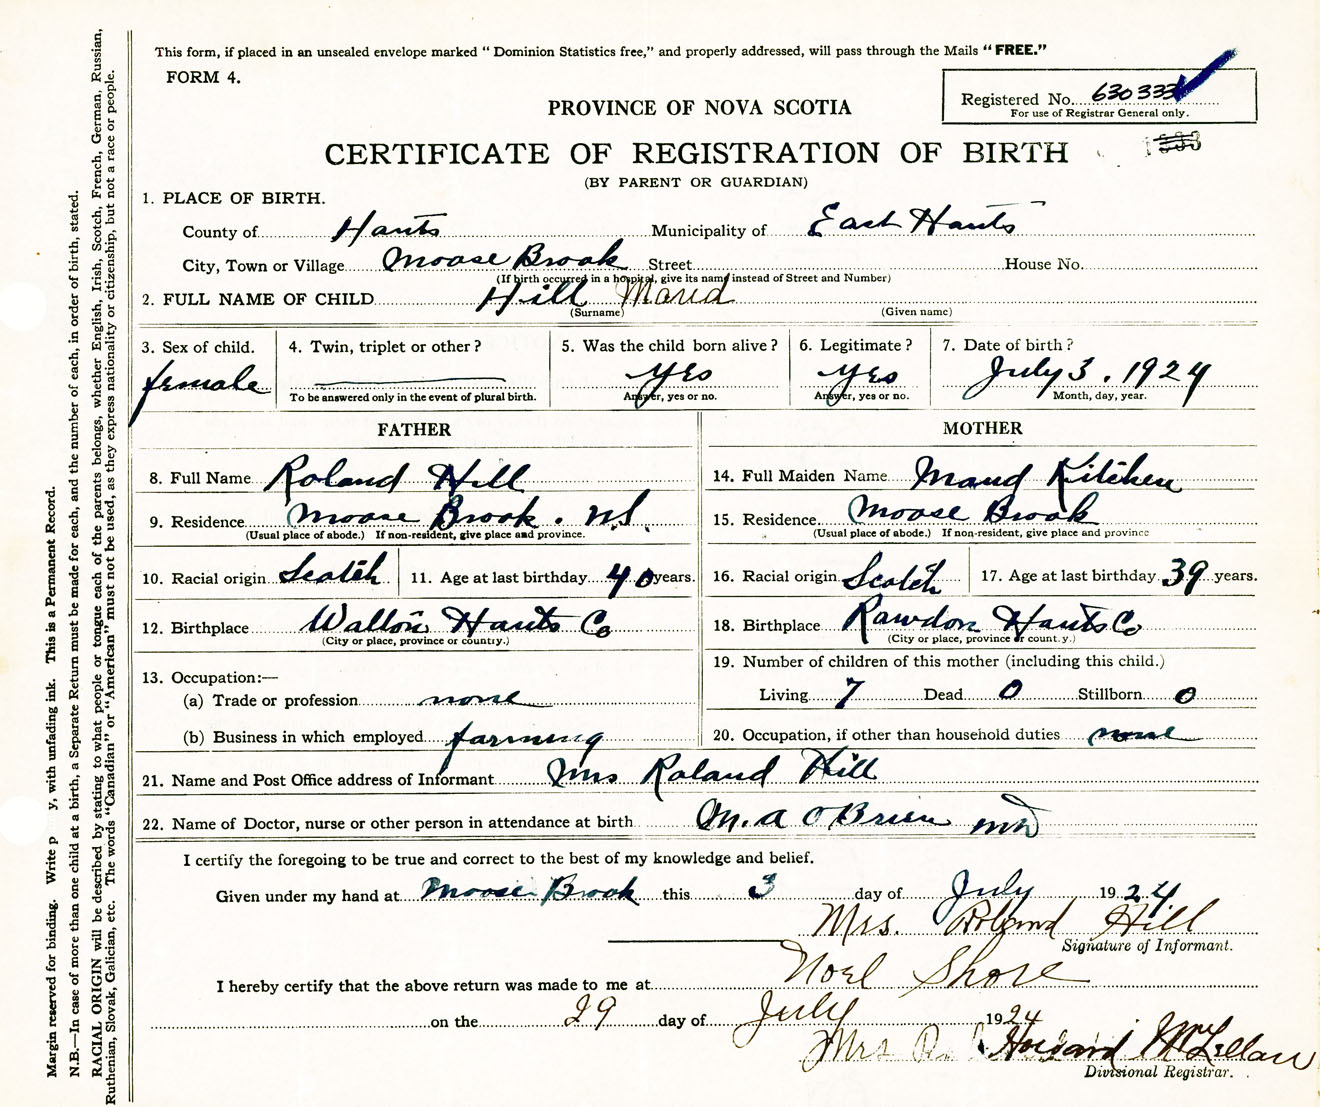 This form, if placed in an unsealed envelope marked " Dominion Statistics free," and properly addressed, will pass through the Mails "FREE."
FORM 4.
Registered No. 630333
For use of Registrar General only.
PROVINCE OF NOVA SCOTIA
CERTIFICATE OF REGISTRATION OF BIRTH
(BY PARENT OR GUARDIAN)
1. PLACE OF BIRTH.
County of Hants Municipality of East Hants
City, Town or Village Moose Brook Street House No.
(If birth occurred in a hospital, give its name instead of Street and Number)
2. FULL NAME OF CHILD Hill
(Surname) (Given name)
3. Sex of child. 4. Twin, triplet or other ? 5. Was the child born alive ? 6. Legitimate ? 7. Date of birth ?
female yes yes July 3. 1924
To be answered only in the event of plural birth. Answer, yes or no. Answer, yes or no. Month, day, year.
FATHER MOTHER
8. Full Name Roland Hill
14. Full Maiden Name Maud Kitchen
9. Residence Moose Brook. N.S.
(Usual place of abode.) If non-resident, give place and province.
15. Residence Moose Brook
(Usual place of abode.) If non-resident, give place and province
10. Racial origin Scotch 11. Age at last birthday 40 years.
16. Racial origin Scotch 17. Age at last birthday 39 years.
12. Birthplace Walton Hants Co
(City or place, province or country.)
18. Birthplace Rawdon Hants Co
(City or place, province or count.y.)
13. Occupation:—
(a) Trade or profession none
(b) Business in which employed farming
19. Number of children of this mother (including this child.)
Living 7 Dead 0 Stillborn 0
20. Occupation, if other than household duties none
21. Name and Post Office address of Informant Mrs Roland Hill
22. Name of Doctor, nurse or other person in attendance at birth M. A O'Brien MD
I certify the foregoing to be true and correct to the best of my knowledge and belief.
Given under my hand at Moose Brook this 3 day of July 1924
Mrs. Roland Hill
Signature of Informant.
I hereby certify that the above return was made to me at Noel Shore
on the 29 day of July 1924
Mrs Howard McLellan
Divisional Registrar.
Margin reserved for binding. Write p y, with unfading ink. This is a Permanent Record.
N.B.—In case of more than one child at a birth, a Separate Return must be made for each, and the number of each, in order of birth, stated.
RACIAL ORIGIN will be described by stating to what people or tongue each of the parents belongs, whether English, Irish, Scotch, French, German, Russian,
Ruthenian, Slovak, Galician, etc. The words "Canadian" or "American" must not be used, as they express nationality or citizenship, but not a race or people.